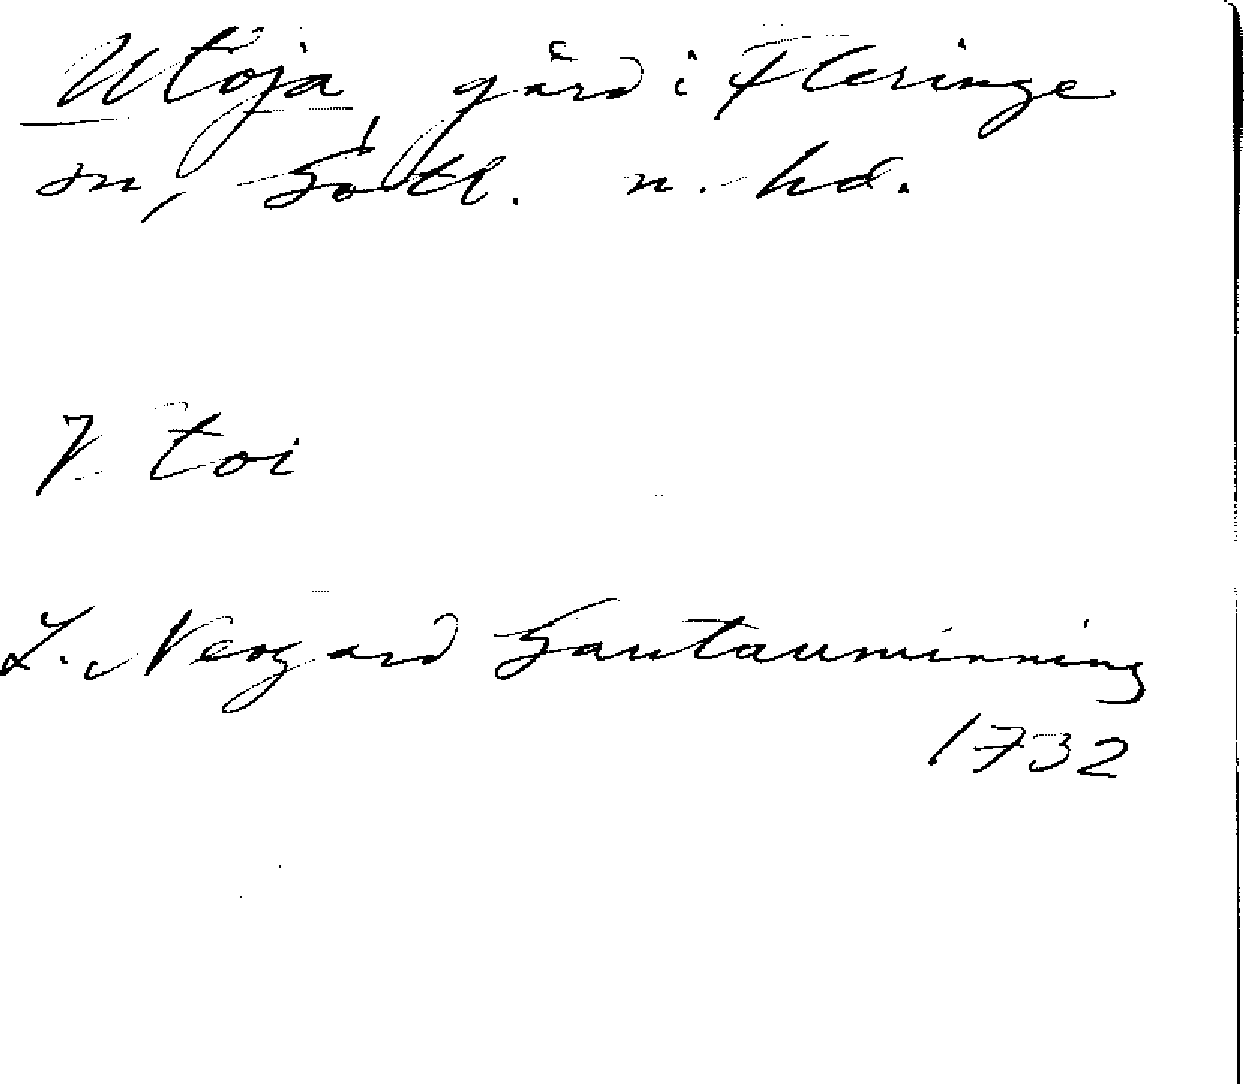 Utoja gård i Fleringe
sn, Gotl. n. hd.
V toi
L. Neogard Gautauminning
1732